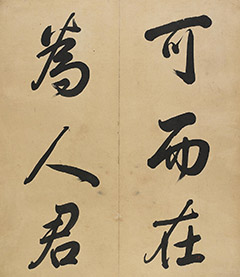 可而在
為人君